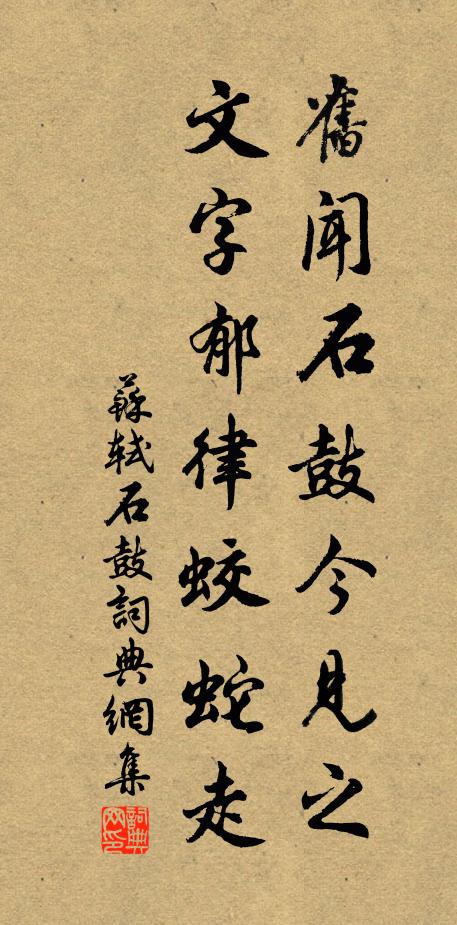 舊聞石鼓今見之
文字郁律蛟蛇走
蘇軾石鼓詞典網集
詞典网印